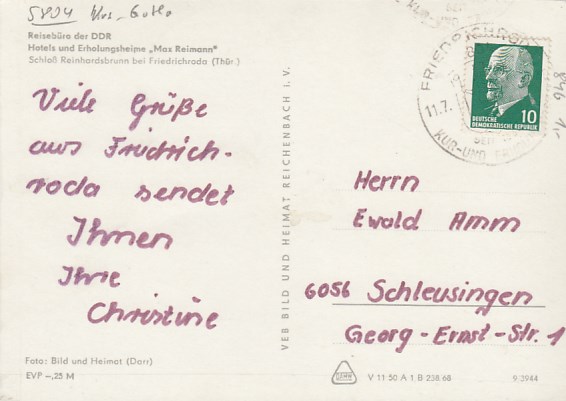 5804 Krs. Gotha
Reisebüro der DDR
Hotels und Erholungsheime „Max Reimann"
Schloß Reinhardsbrunn bei Friedrichroda (Thür.)
Viele Grüße
aus Friedrich-
roda sendet
Ihnen
Ihre
Christine
Foto: Bild und Heimat (Darr)
EVP –,25 M
VEB BILD UND HEIMAT REICHENBACH I. V.
FRIEDRICHRODA
11.7.
KUR-UND
10
DEUTSCHE
DEMOKRATISCHE REPUBLIK
846 1,-
Herrn
Ewald Amm
6056 Schleusingen
Georg-Ernst-Str. 1
V 11 50 A 1 B 238 68
9/3944